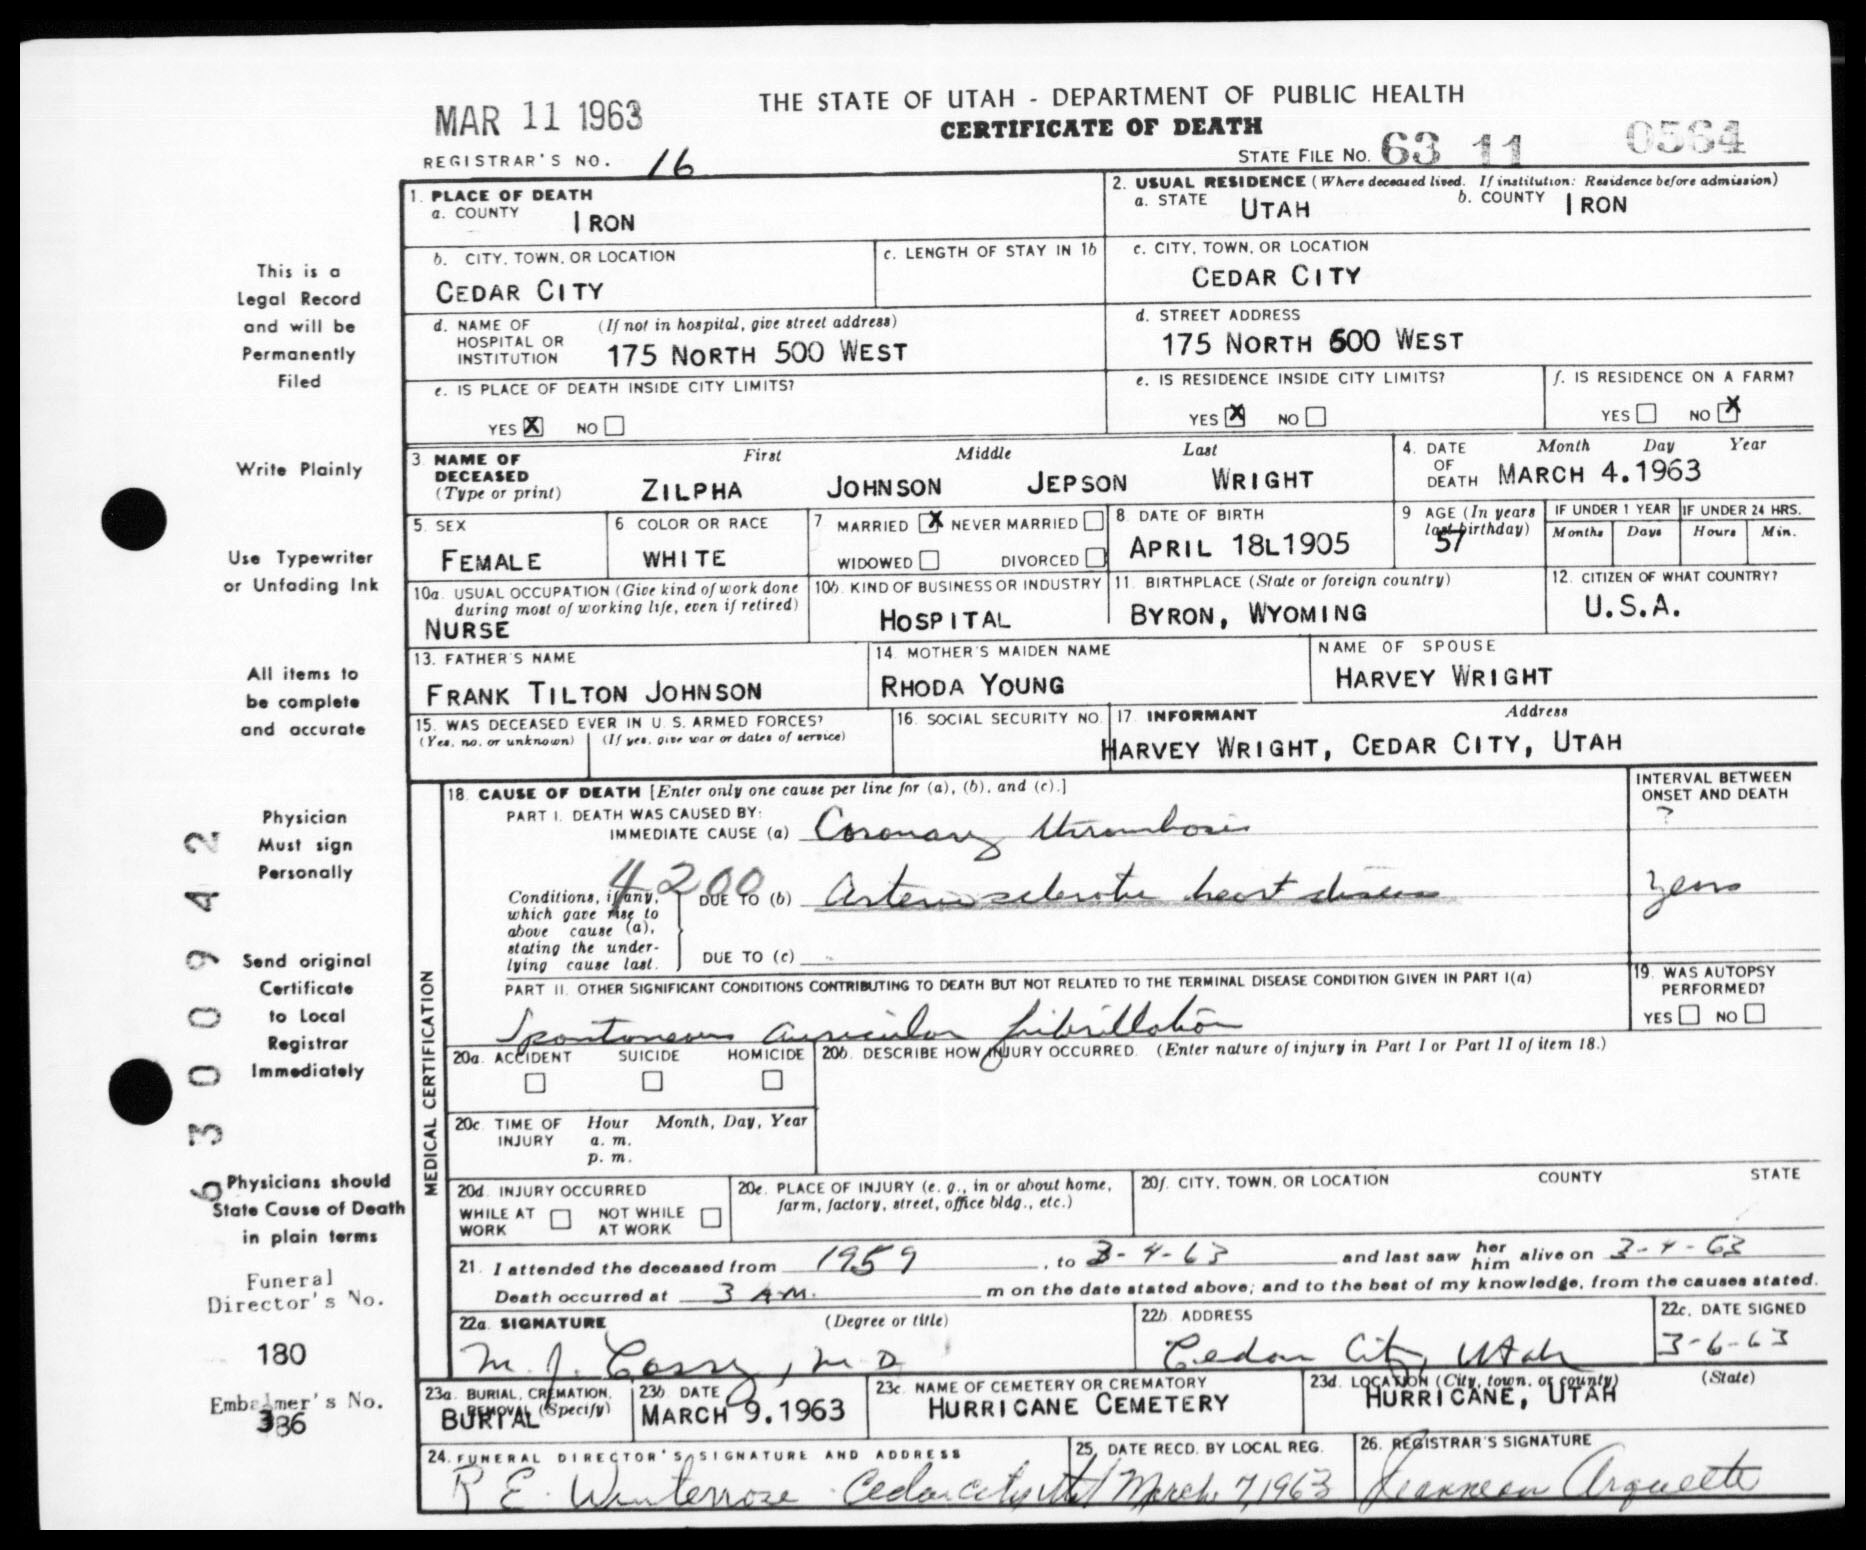 MAR 11 1963
THE STATE OF UTAH - DEPARTMENT OF PUBLIC HEALTH
CERTIFICATE OF DEATH
REGISTRAR'S NO. 16
STATE FILE NO. 63 11 0564
1. PLACE OF DEATH
a. COUNTY IRON
2. USUAL RESIDENCE (Where deceased lived. If institution: Residence before admission)
a. STATE UTAH b. COUNTY IRON
b. CITY, TOWN, OR LOCATION
CEDAR CITY
c. LENGTH OF STAY IN 1b
c. CITY, TOWN, OR LOCATION
CEDAR CITY
d. NAME OF HOSPITAL OR INSTITUTION (If not in hospital, give street address)
175 NORTH 500 WEST
d. STREET ADDRESS
175 NORTH 500 WEST
e. IS PLACE OF DEATH INSIDE CITY LIMITS?
YES X NO
e. IS RESIDENCE INSIDE CITY LIMITS?
YES X NO
f. IS RESIDENCE ON A FARM?
YES NO X
3. NAME OF DECEASED (Type or print) First Middle Last
ZILPHA JOHNSON JEPSON WRIGHT
4. DATE OF DEATH Month Day Year
MARCH 4.1963
5. SEX
FEMALE
6. COLOR OR RACE
WHITE
7. MARRIED X NEVER MARRIED
WIDOWED DIVORCED
8. DATE OF BIRTH
APRIL 18L1905
9 AGE (In years last birthday)
57
IF UNDER 1 YEAR
Months Days
IF UNDER 24 HRS.
Hours Min.
10a. USUAL OCCUPATION (Give kind of work done during most of working life, even if retired)
NURSE
10b. KIND OF BUSINESS OR INDUSTRY
HOSPITAL
11. BIRTHPLACE (State or foreign country)
BYRON, WYOMING
12. CITIZEN OF WHAT COUNTRY?
U.S.A.
13. FATHER'S NAME
FRANK TILTON JOHNSON
14. MOTHER'S MAIDEN NAME
RHODA YOUNG
NAME OF SPOUSE
HARVEY WRIGHT
15. WAS DECEASED EVER IN U. S. ARMED FORCES?
(Yes, no, or unknown) (If yes, give war or dates of service)
16. SOCIAL SECURITY NO.
17. INFORMANT Address
HARVEY WRIGHT, CEDAR CITY, UTAH
MEDICAL CERTIFICATION
18. CAUSE OF DEATH [Enter only one cause per line for (a), (b), and (c).]
INTERVAL BETWEEN ONSET AND DEATH
PART I. DEATH WAS CAUSED BY:
IMMEDIATE CAUSE (a) Coronary thrombosis ?
4200
Conditions, if any, which gave rise to above cause (a), stating the underlying cause last.
DUE TO (b) Arteriosclerotic heart disease years
DUE TO (c)
PART II. OTHER SIGNIFICANT CONDITIONS CONTRIBUTING TO DEATH BUT NOT RELATED TO THE TERMINAL DISEASE CONDITION GIVEN IN PART I(a)
Spontaneous auricular fibrillation
19. WAS AUTOPSY PERFORMED?
YES NO
20a. ACCIDENT SUICIDE HOMICIDE
20b. DESCRIBE HOW INJURY OCCURRED. (Enter nature of injury in Part I or Part II of item 18.)
20c. TIME OF INJURY Hour Month, Day, Year
a. m.
p. m.
20d. INJURY OCCURRED
WHILE AT WORK NOT WHILE AT WORK
20e. PLACE OF INJURY (e. g., in or about home, farm, factory, street, office bldg., etc.)
20f. CITY, TOWN, OR LOCATION COUNTY STATE
21. I attended the deceased from 1959, to 3-4-63 and last saw her him alive on 3-4-63
Death occurred at 3 A.M. m on the date stated above; and to the best of my knowledge, from the causes stated.
22a. SIGNATURE (Degree or title)
M. J. , M D
22b. ADDRESS
Cedar City, Utah
22c. DATE SIGNED
3-6-63
23a. BURIAL, CREMATION, REMOVAL (Specify)
BURIAL
23b. DATE
MARCH 9.1963
23c. NAME OF CEMETERY OR CREMATORY
HURRICANE CEMETERY
23d. LOCATION (City, town, or county) (State)
HURRICANE, UTAH
24. FUNERAL DIRECTOR'S SIGNATURE AND ADDRESS
R E. Winterrose Cedar City Utah
25. DATE RECD. BY LOCAL REG.
March 7, 1963
26. REGISTRAR'S SIGNATURE
Arquette
This is a
Legal Record
and will be
Permanently
Filed
Write Plainly
Use Typewriter
or Unfading Ink
All items to
be complete
and accurate
Physician
Must sign
Personally
Send original
Certificate
to Local
Registrar
Immediately
Physicians should
State Cause of Death
in plain terms
63000942
Funeral
Director's No.
180
Embalmer's No.
386